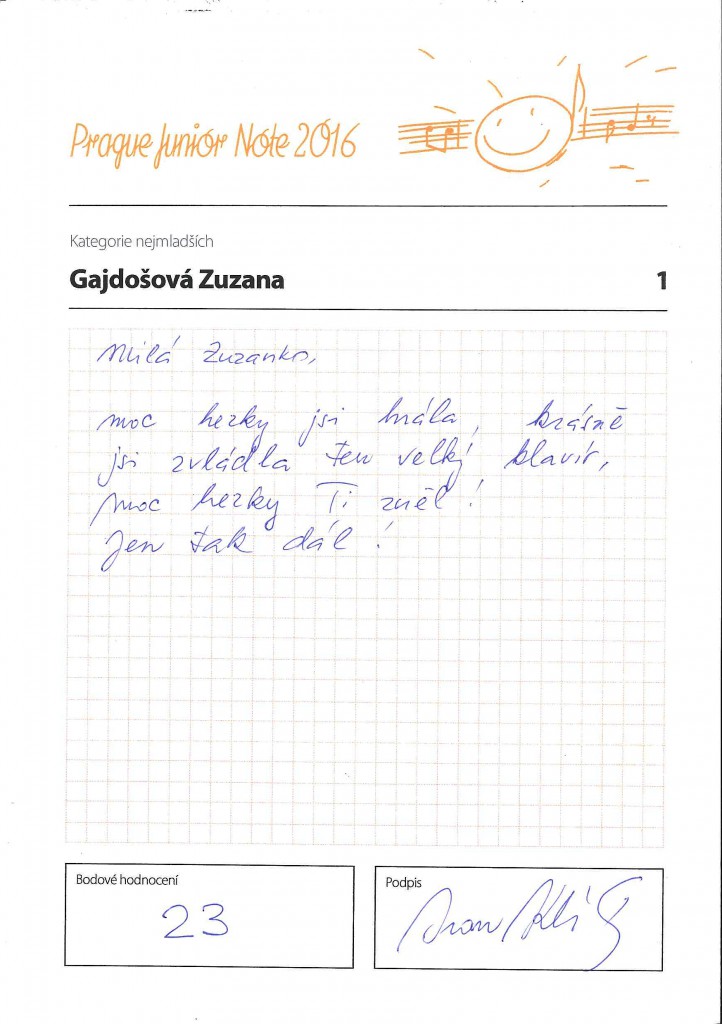 Prague Juniór Note 2016
Kategorie nejmladších
Gajdošová Zuzana 1
Milá Zuzanko,
moc hezky jsi hrála, krásně
jsi zvládla ten velký klavír,
moc hezky Ti zněl!
Jen tak dál!
Bodové hodnocení
23
Podpis
Ivan